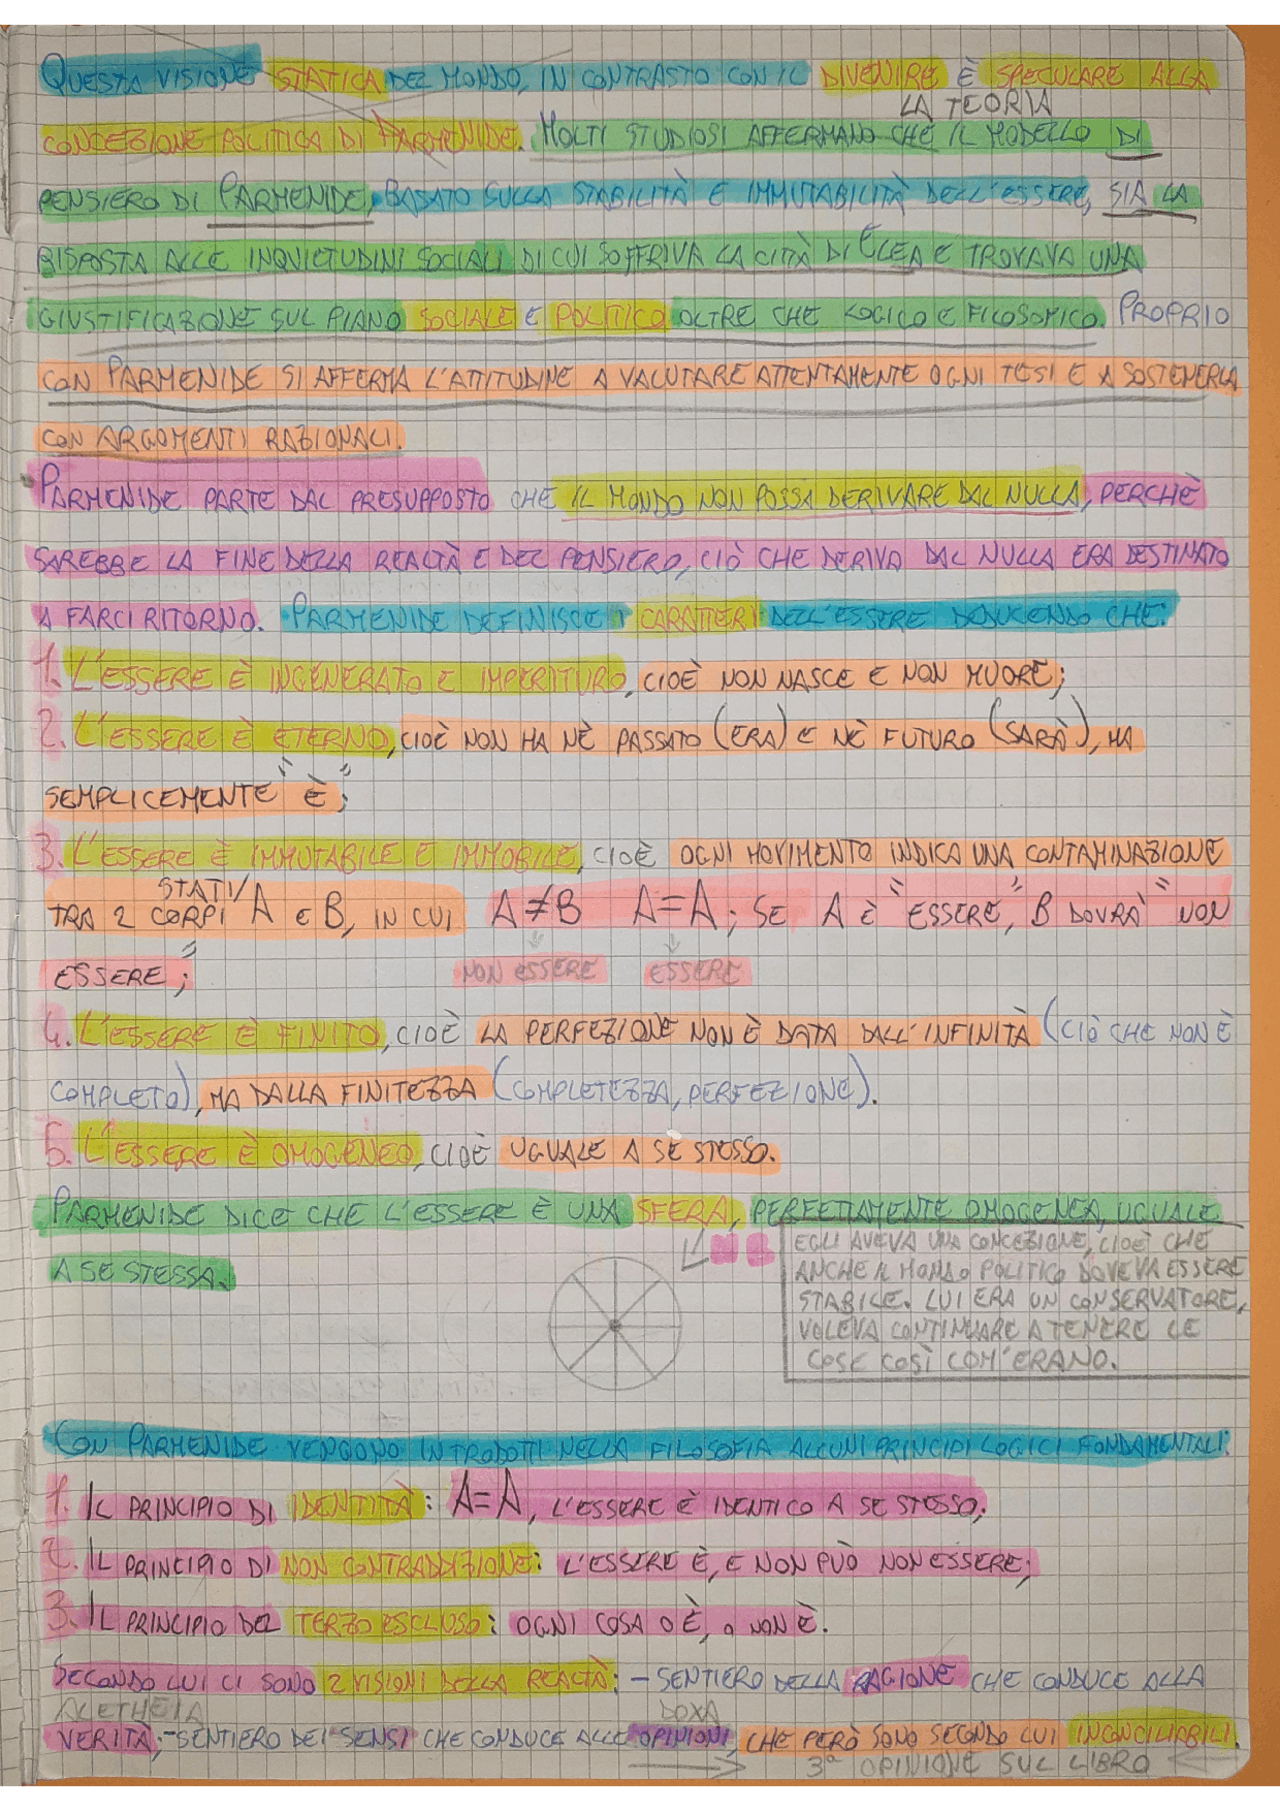 QUESTA VISIONE STATICA DEL MONDO, IN CONTRASTO CON IL DIVENIRE È SPECULARE ALLA
LA TEORIA
CONCEZIONE POLITICA DI PARMENIDE. MOLTI STUDIOSI AFFERMANO CHE IL MODELLO DI
PENSIERO DI PARMENIDE, BASATO SULLA STABILITÀ E IMMUTABILITÀ DELL'ESSERE, SIA LA
RISPOSTA ALLE INQUIETUDINI SOCIALI DI CUI SOFFRIVA LA CITTÀ DI ELEA E TROVAVA UNA
GIUSTIFICAZIONE SUL PIANO SOCIALE E POLITICO OLTRE CHE LOGICO E FILOSOFICO. PROPRIO
CON PARMENIDE SI AFFERMA L'ATTITUDINE A VALUTARE ATTENTAMENTE OGNI TESI E A SOSTENERLA
CON ARGOMENTI RAZIONALI.
PARMENIDE PARTE DAL PRESUPPOSTO CHE IL MONDO NON POSSA DERIVARE DAL NULLA, PERCHÈ
SAREBBE LA FINE DELLA REALTÀ E DEL PENSIERO, CIÒ CHE DERIVA DAL NULLA ERA DESTINATO
A FARCI RITORNO. PARMENIDE DEFINISCE I CARATTERI DELL'ESSERE DEDUCENDO CHE:
1. L'ESSERE È INGENERATO E IMPERITURO, CIOÈ NON NASCE E NON MUORE;
2. L'ESSERE È ETERNO, CIOÈ NON HA NÈ PASSATO (ERA) E NÈ FUTURO (SARÀ), MA
SEMPLICEMENTE "È";
3. L'ESSERE È IMMUTABILE E IMMOBILE, CIOÈ OGNI MOVIMENTO INDICA UNA CONTAMINAZIONE
STATI/
TRA 2 CORPI A E B, IN CUI A≠B A=A; SE A È "ESSERE", B DOVRÀ "NON
ESSERE";
NON ESSERE ESSERE
4. L'ESSERE È FINITO, CIOÈ LA PERFEZIONE NON È DATA DALL'INFINITÀ (CIÒ CHE NON È
COMPLETO), MA DALLA FINITEZZA (COMPLETEZZA, PERFEZIONE).
5. L'ESSERE È OMOGENEO, CIOÈ UGUALE A SÈ STESSO.
PARMENIDE DICE CHE L'ESSERE È UNA SFERA, PERFETTAMENTE OMOGENEA, UGUALE
A SE STESSA.
EGLI AVEVA UNA CONCEZIONE, CIOÈ CHE
ANCHE IL MONDO POLITICO DOVEVA ESSERE
STABILE. LUI ERA UN CONSERVATORE,
VOLEVA CONTINUARE A TENERE LE
COSE COSÌ COM'ERANO.
CON PARMENIDE VENGONO INTRODOTTI NELLA FILOSOFIA ALCUNI PRINCIPI LOGICI FONDAMENTALI:
1. IL PRINCIPIO DI IDENTITÀ: A=A, L'ESSERE È IDENTICO A SE STESSO;
2. IL PRINCIPIO DI NON CONTRADDIZIONE: L'ESSERE È, E NON PUÒ NON ESSERE;
3. IL PRINCIPIO DEL TERZO ESCLUSO: OGNI COSA O È, O NON È.
SECONDO LUI CI SONO 2 VISIONI DELLA REALTÀ: - SENTIERO DELLA RAGIONE CHE CONDUCE ALLA
ALETHEIA DOXA
VERITÀ; - SENTIERO DEI SENSI CHE CONDUCE ALLE OPINIONI, CHE PERÒ SONO SECONDO LUI INCONCILIABILI.
3ª OPINIONE SUL LIBRO